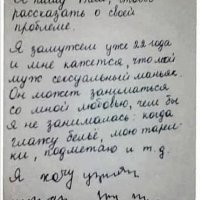 рассказать о своей
проблеме.
Я замужем уже 22 года
и мне кажется, что мой
муж сексуальный маньяк.
Он может заниматься
со мной любовью, чем бы
я не занималась: когда
глажу бельё, мою тарел-
ки, подметаю и т.д.
Я хочу